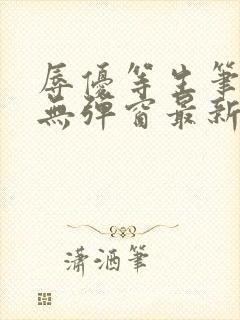 辱優等生筆
無彈窗最新
瀟酒筆